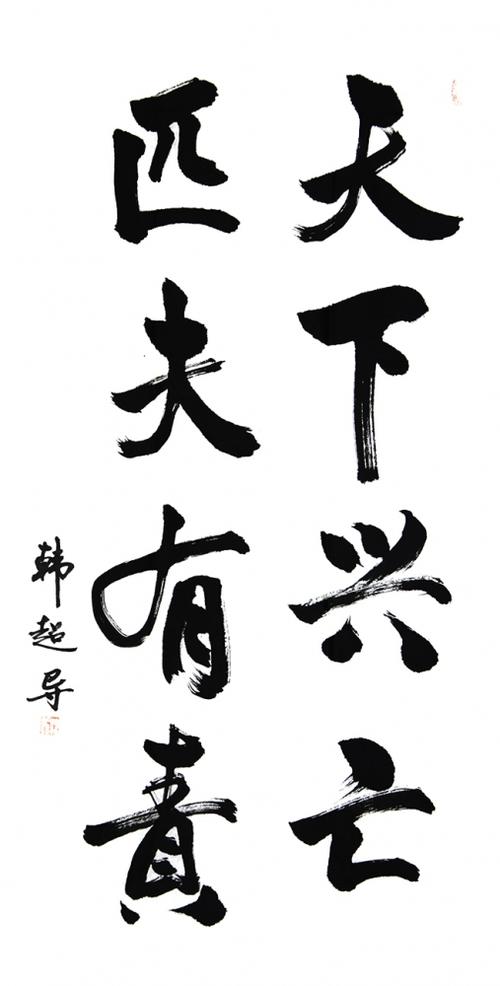 天下兴亡
匹夫有責
韩超导